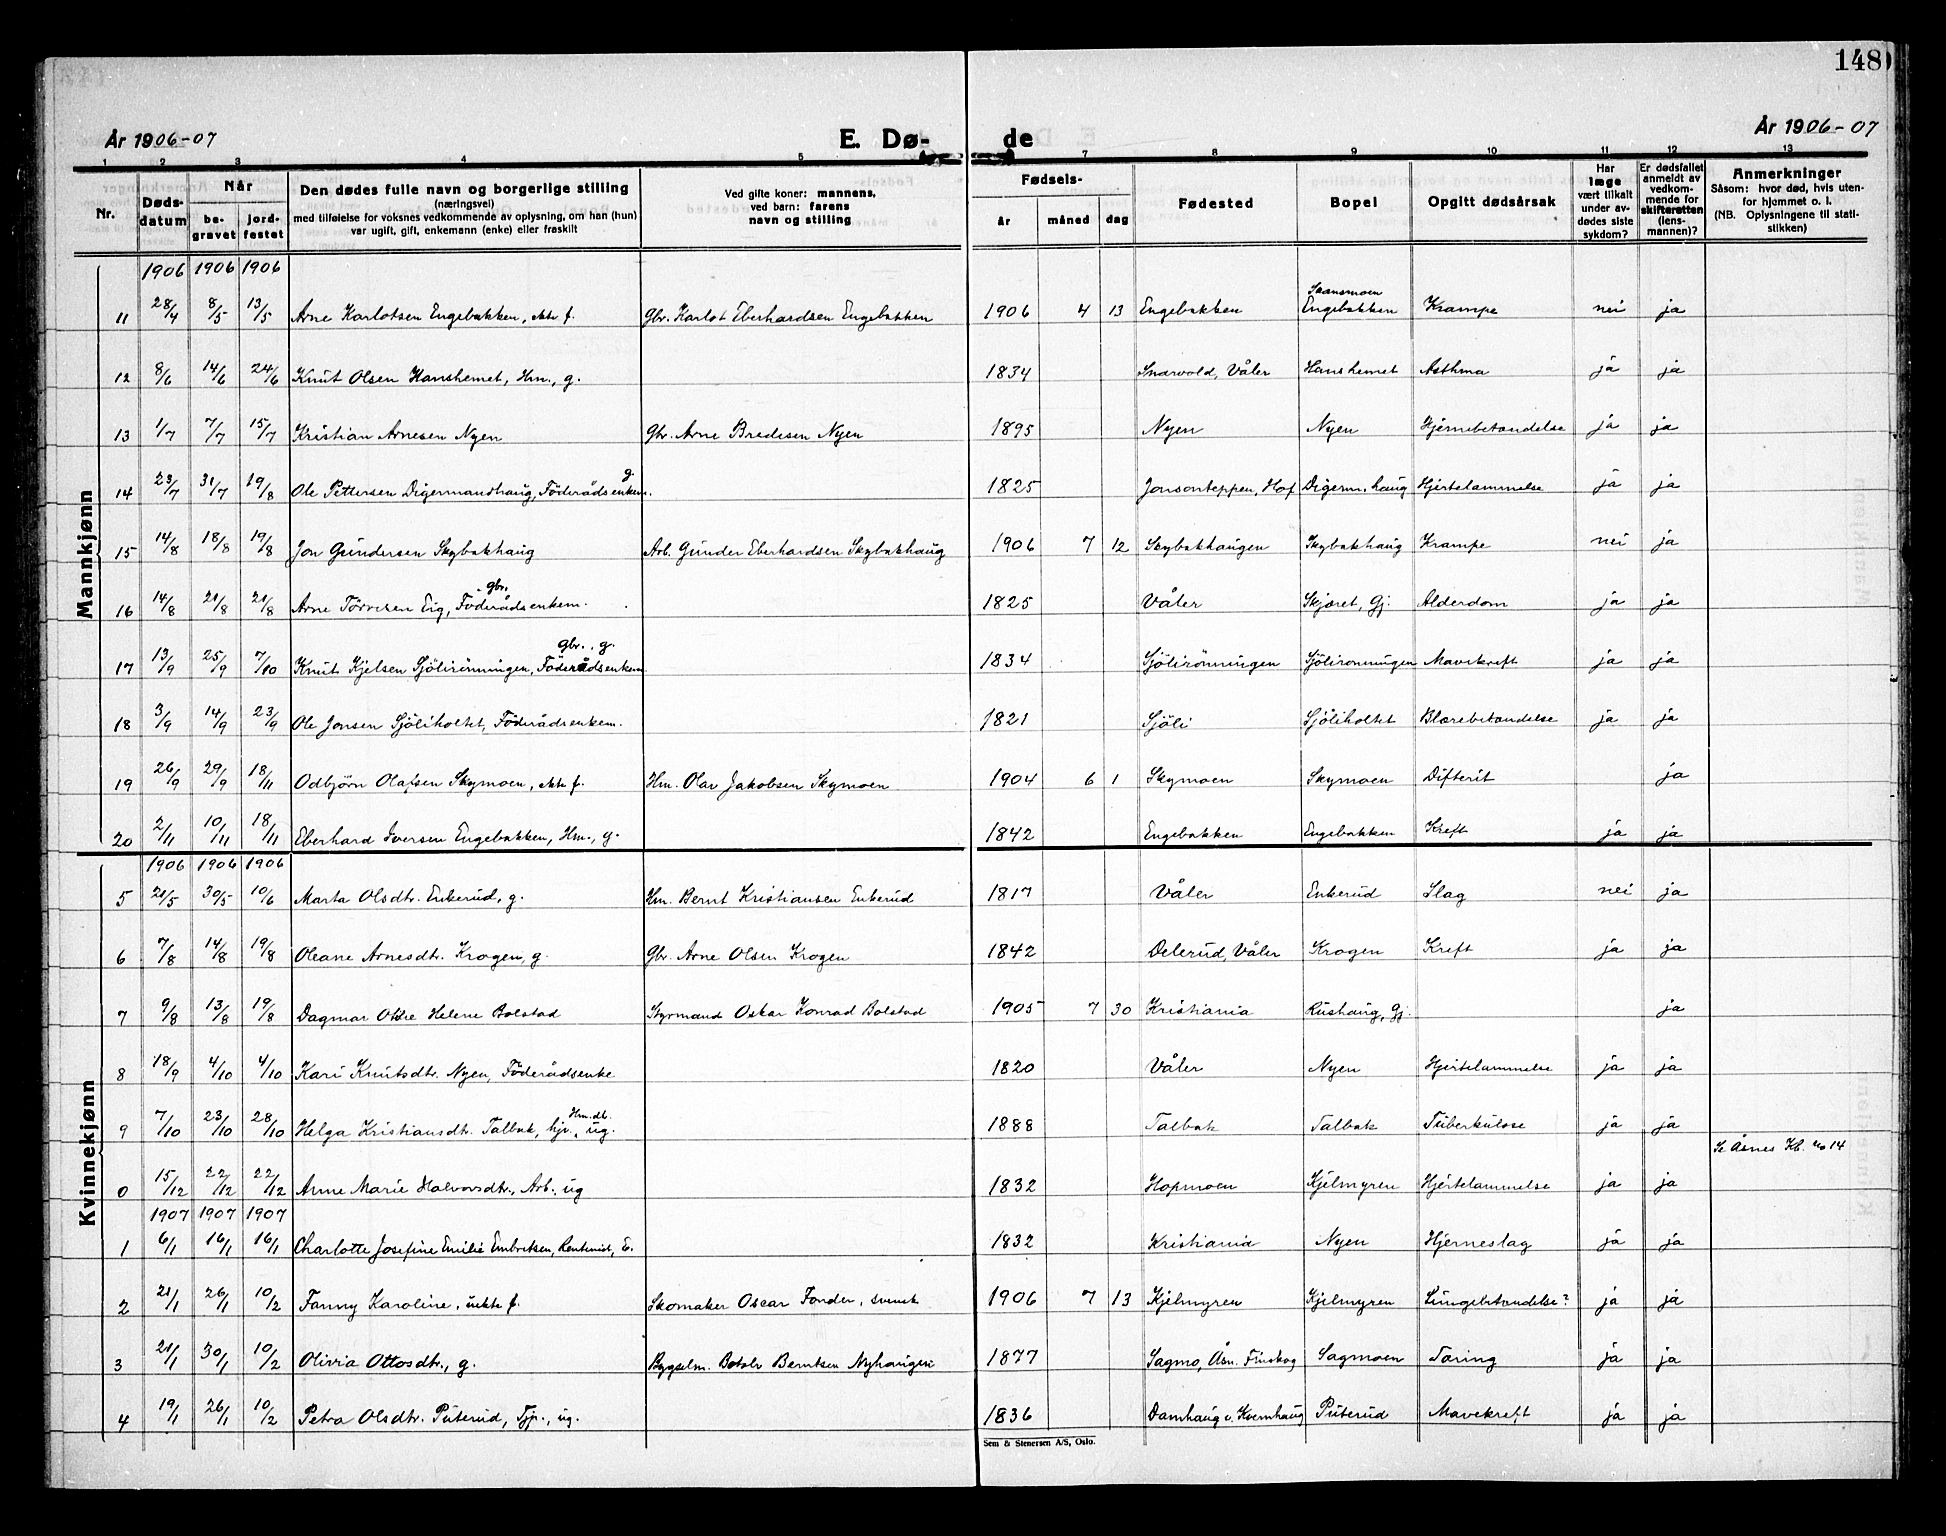 148
År 1906-07 E. Dø- de År 1906-07
1 2 3 4 5 7 8 9 10 11 12 13
Nr. Døds-datum Når be-gravet jord-festet Den dødes fulle navn og borgerlige stilling (næringsvei) med tilføielse for voksnes vedkommende av oplysning, om han (hun) var ugift, gift, enkemann (enke) eller fraskilt Ved gifte koner: mannens, ved barn: farens navn og stilling Fødsels- år måned dag Fødested Bopel Opgitt dødsårsak Har læge vært tilkalt under av-dødes siste sykdom? Er dødsfallet anmeldt av vedkom-mende for skifteretten (lens-mannen)? Anmerkninger Såsom: hvor død, hvis uten-for hjemmet o. l. (NB. Oplysningene til stati-stikken)
Mannkjønn
1906 1906 1906
11 28/4 8/5 13/5 Arne Karlotsen Engebakken, ekte f. Gbr. Karlot Eberhardsen Engebakken 1906 4 13 Engebakken Skansmoen Engebakken Krampe nei ja
12 8/6 14/6 24/6 Knut Olsen Hanshemet, Hm., g. 1834 Snarvold, Våler Hanshemet Asthma ja ja
13 1/7 7/7 15/7 Kristian Arnesen Nyen Gbr. Arne Bredesen Nyen 1895 Nyen Nyen Hjernebetændelse ja ja
14 23/7 31/7 19/8 Ole Pettersen Digermandhaug, Föderådsenkem. g. 1825 Jonsonteppen, Hof Digerm. haug Hjertelammelse ja ja
15 14/8 18/8 19/8 Jon Gundersen Skybakhaug Arb. Gunder Eberhardsen Skybakhaug 1906 7 12 Skybakhaugen Skybakhaug Krampe nei ja
16 14/8 21/8 21/8 Arne Torversen Eig, gbr. Föderådsenkem. 1825 Våler Skjæret, Gj. Alderdom ja ja
17 13/9 25/9 7/10 Knut Kjelsen Sjölirönningen, gbr., g. Föderådsenkem 1834 Sjölirönningen Sjölironningen Mavekreft ja ja
18 3/9 14/9 23/9 Ole Jonsen Sjöliholtet, Föderådsenkem. 1821 Sjöli Sjöliholtet Blærebetændelse ja ja
19 26/9 29/9 18/11 Odbjörn Olafsen Skymoen, ekte f. Hm. Olav Jakobsen Skymoen 1904 6 1 Skymoen Skymoen Difterit ja
20 2/11 10/11 18/11 Eberhard Iversen Engebakken, Hm., g. 1842 Engebakken Engebakken Kreft ja ja
Kvinnekjønn
1906 1906 1906
5 21/5 30/5 10/6 Marta Olsdtr. Enkerud, g. Hm. Bernt Kristiansen Enkerud 1817 Våler Enkerud Slag nei ja
6 7/8 14/8 19/8 Oleane Arnesdtr. Krogen, g. Gbr. Arne Olsen Krogen 1842 Delerud, Våler Krogen Kreft ja ja
7 9/8 13/8 19/8 Dagmar Helene Bolstad Styrmand Oskar Konrad Bolstad 1905 7 30 Kristiania Rushaug, Gj. ja
8 18/9 4/10 4/10 Kari Knutsdtr. Nyen, Föderådsenke 1820 Våler Nyen Hjertelammelse ja ja
9 7/10 23/10 28/10 Helga Kristiansdtr. Talbak, hjv., Hm. db. ug. 1888 Talbak Talbak Tuberkulose ja ja
Se Åsnes Kb. no 14
0 15/12 22/12 22/12 Anne Marie Halvorsdtr., Arb., ug 1832 Hopmoen Kjelmyren Hjertelammelse ja ja
1907 1907 1907
1 6/1 16/1 16/1 Charlotte Josefine Emilie Embretsen, Rentenist, E. 1832 Kristiania Nyen Hjerneslag ja ja
2 21/1 26/1 10/2 Fanny Karoline, uekte f. Skomaker Oscar Fonder, svensk 1906 7 13 Kjelmyren Kjelmyren Lungebetændelse? ja ja
3 21/1 30/1 10/2 Olivia Ottosdtr., g. Bygselm. Botolv Berntsen Nyhaugen 1877 Sagmo, Åsn. Finskog Sagmoen Tæring ja ja
4 19/1 26/1 10/2 Petra Olsdtr. Puterud, Tjp., ug. 1836 Damhaug v. Kvernhaug Puterud Mavekreft ja ja
Sem & Stenersen A/S, Oslo.